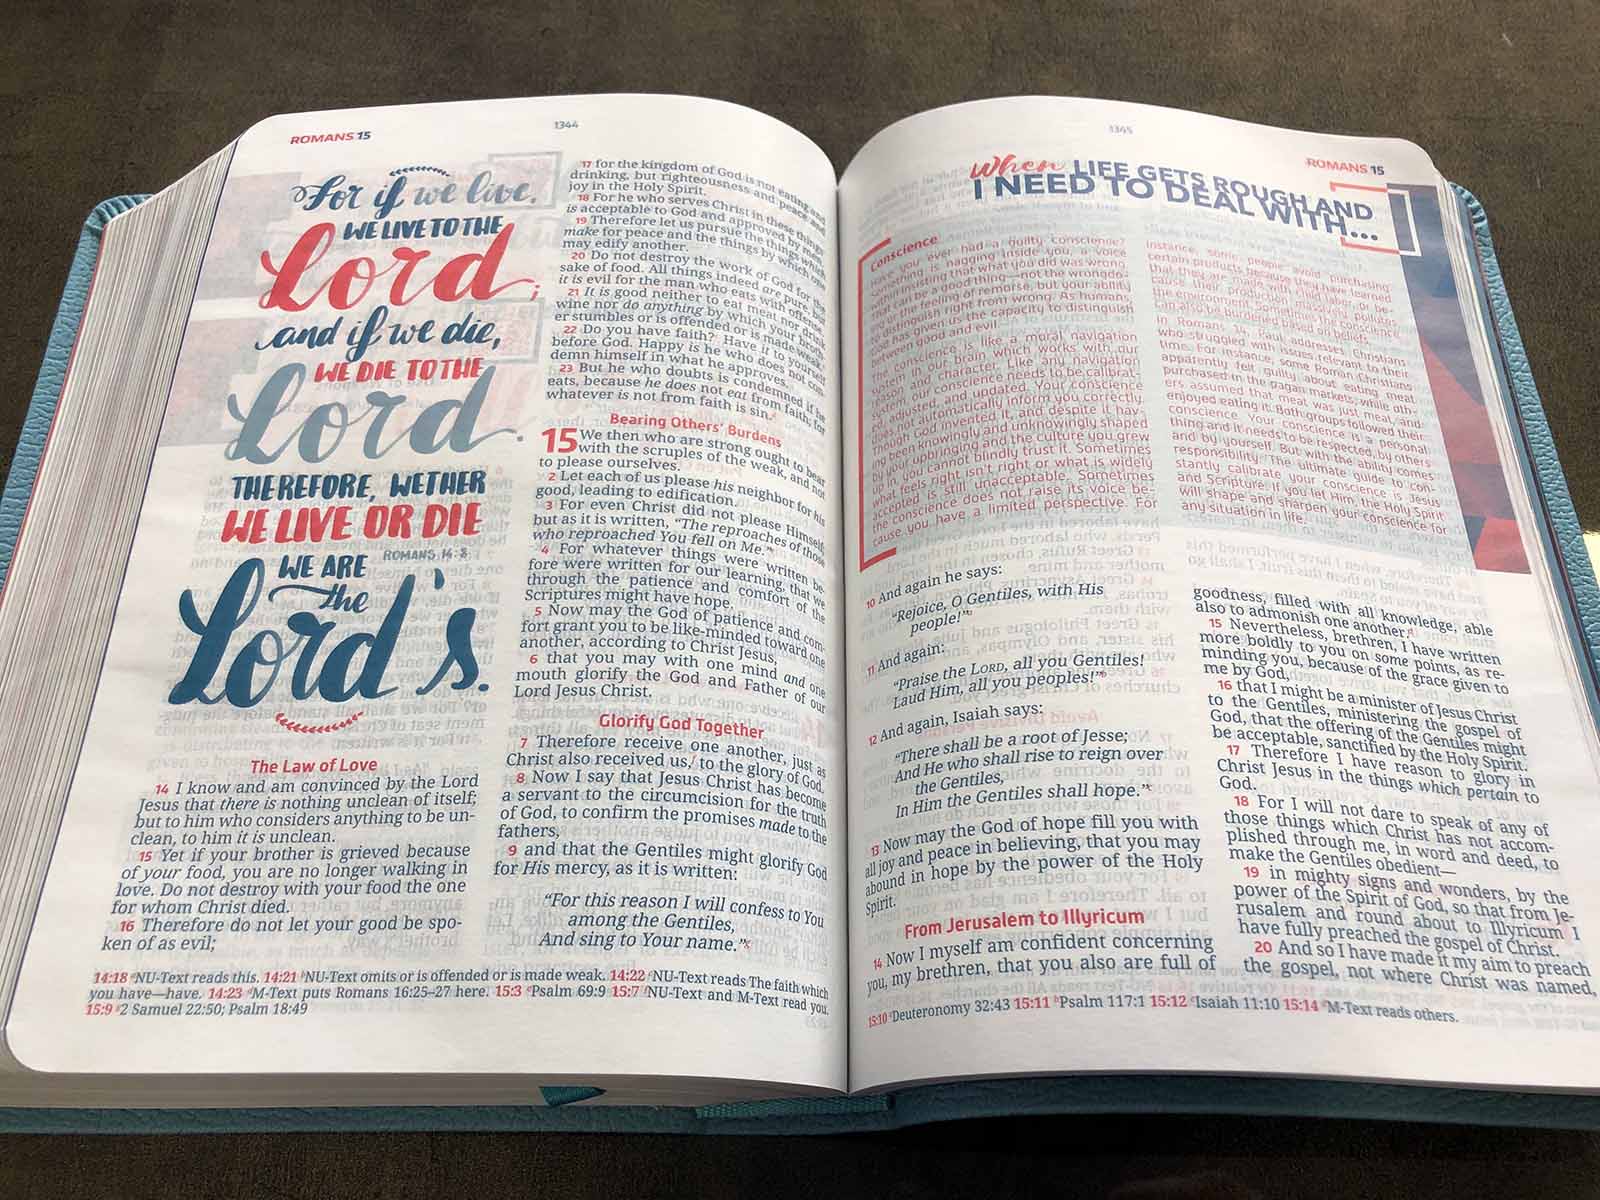 ROMANS 15
1344
For if we live,
WE LIVE TO THE
Lord;
and if we die,
WE DIE TO THE
Lord.
THEREFORE, WETHER
WE LIVE OR DIE
ROMANS 14:8
WE ARE
the
Lord's.
The Law of Love
14 I know and am convinced by the Lord
Jesus that there is nothing unclean of itself;
but to him who considers anything to be un-
clean, to him it is unclean.
15 Yet if your brother is grieved because
of your food, you are no longer walking in
love. Do not destroy with your food the one
for whom Christ died.
16 Therefore do not let your good be spo-
ken of as evil;
17 for the kingdom of God is not eating and
drinking, but righteousness and peace and
joy in the Holy Spirit.
18 For he who serves Christ in these things
is acceptable to God and approved by men.
19 Therefore let us pursue the things which
make for peace and the things by which one
may edify another.
20 Do not destroy the work of God for the
sake of food. All things indeed are pure, but
it is evil for the man who eats with offense.
21 It is good neither to eat meat nor drink
wine nor do anything by which your broth-
er stumbles or is offended or is made weak.
22 Do you have faith? Have it to yourself
before God. Happy is he who does not con-
demn himself in what he approves.
23 But he who doubts is condemned if he
eats, because he does not eat from faith; for
whatever is not from faith is sin.
Bearing Others' Burdens
15 We then who are strong ought to bear
with the scruples of the weak, and not
to please ourselves.
2 Let each of us please his neighbor for his
good, leading to edification.
3 For even Christ did not please Himself;
but as it is written, “The reproaches of those
who reproached You fell on Me.”
4 For whatever things were written be-
fore were written for our learning, that we
through the patience and comfort of the
Scriptures might have hope.
5 Now may the God of patience and com-
fort grant you to be like-minded toward one
another, according to Christ Jesus,
6 that you may with one mind and one
mouth glorify the God and Father of our
Lord Jesus Christ.
Glorify God Together
7 Therefore receive one another, just as
Christ also received us, to the glory of God.
8 Now I say that Jesus Christ has become
a servant to the circumcision for the truth
of God, to confirm the promises made to the
fathers,
9 and that the Gentiles might glorify God
for His mercy, as it is written:
“For this reason I will confess to You
among the Gentiles,
And sing to Your name.”
14:18 NU-Text reads this. 14:21 NU-Text omits or is offended or is made weak. 14:22 NU-Text reads The faith which
you have—have. 14:23 M-Text puts Romans 16:25–27 here. 15:3 Psalm 69:9 15:7 NU-Text and M-Text read you.
15:9 2 Samuel 22:50; Psalm 18:49
1345
ROMANS 15
When LIFE GETS ROUGH AND
I NEED TO DEAL WITH...
Conscience
Have you ever had a guilty conscience?
Something is nagging inside you, a voice
within insisting that what you did was wrong.
That can be a good thing—not the wrongdo-
ing or the feeling of remorse, but your ability
to distinguish right from wrong. As humans,
God has given us the capacity to distinguish
between good and evil.
The conscience is like a moral navigation
system in our brain which works with our
reason and character. Like any navigation
system, our conscience needs to be calibrat-
ed, adjusted, and updated. Your conscience
does not automatically inform you correctly,
though God invented it, and despite it hav-
ing been knowingly and unknowingly shaped
by your upbringing and the culture you grew
up in, you cannot blindly trust it. Sometimes
what feels right isn't right or what is widely
accepted is still unacceptable. Sometimes
the conscience does not raise its voice be-
cause you have a limited perspective. For
instance, some people avoid purchasing
certain products because they have learned
that they are made with child labor, or be-
cause their production massively pollutes
the environment. Sometimes the conscience
can also be burdened based on beliefs.
In Romans 14, Paul addresses Christians
who struggled with issues relevant to their
time. For instance, some Roman Christians
apparently felt guilty about eating meat
purchased in the pagan markets; while oth-
ers assumed that meat was just meat, and
enjoyed eating it. Both groups followed their
conscience. Your conscience is a personal
thing and it needs to be respected, by others
and by yourself. But with the ability comes
responsibility. The ultimate guide to con-
stantly calibrate your conscience is Jesus
and Scripture. If you let Him, the Holy Spirit
will shape and sharpen your conscience for
any situation in life.
10 And again he says:
“Rejoice, O Gentiles, with His
people!”
11 And again:
“Praise the LORD, all you Gentiles!
Laud Him, all you peoples!”
12 And again, Isaiah says:
“There shall be a root of Jesse;
And He who shall rise to reign over
the Gentiles,
In Him the Gentiles shall hope.”
13 Now may the God of hope fill you with
all joy and peace in believing, that you may
abound in hope by the power of the Holy
Spirit.
From Jerusalem to Illyricum
14 Now I myself am confident concerning
you, my brethren, that you also are full of
goodness, filled with all knowledge, able
also to admonish one another.
15 Nevertheless, brethren, I have written
more boldly to you on some points, as re-
minding you, because of the grace given to
me by God,
16 that I might be a minister of Jesus Christ
to the Gentiles, ministering the gospel of
God, that the offering of the Gentiles might
be acceptable, sanctified by the Holy Spirit.
17 Therefore I have reason to glory in
Christ Jesus in the things which pertain to
God.
18 For I will not dare to speak of any of
those things which Christ has not accom-
plished through me, in word and deed, to
make the Gentiles obedient—
19 in mighty signs and wonders, by the
power of the Spirit of God, so that from Je-
rusalem and round about to Illyricum I
have fully preached the gospel of Christ.
20 And so I have made it my aim to preach
the gospel, not where Christ was named,
15:10 Deuteronomy 32:43 15:11 Psalm 117:1 15:12 Isaiah 11:10 15:14 M-Text reads others.